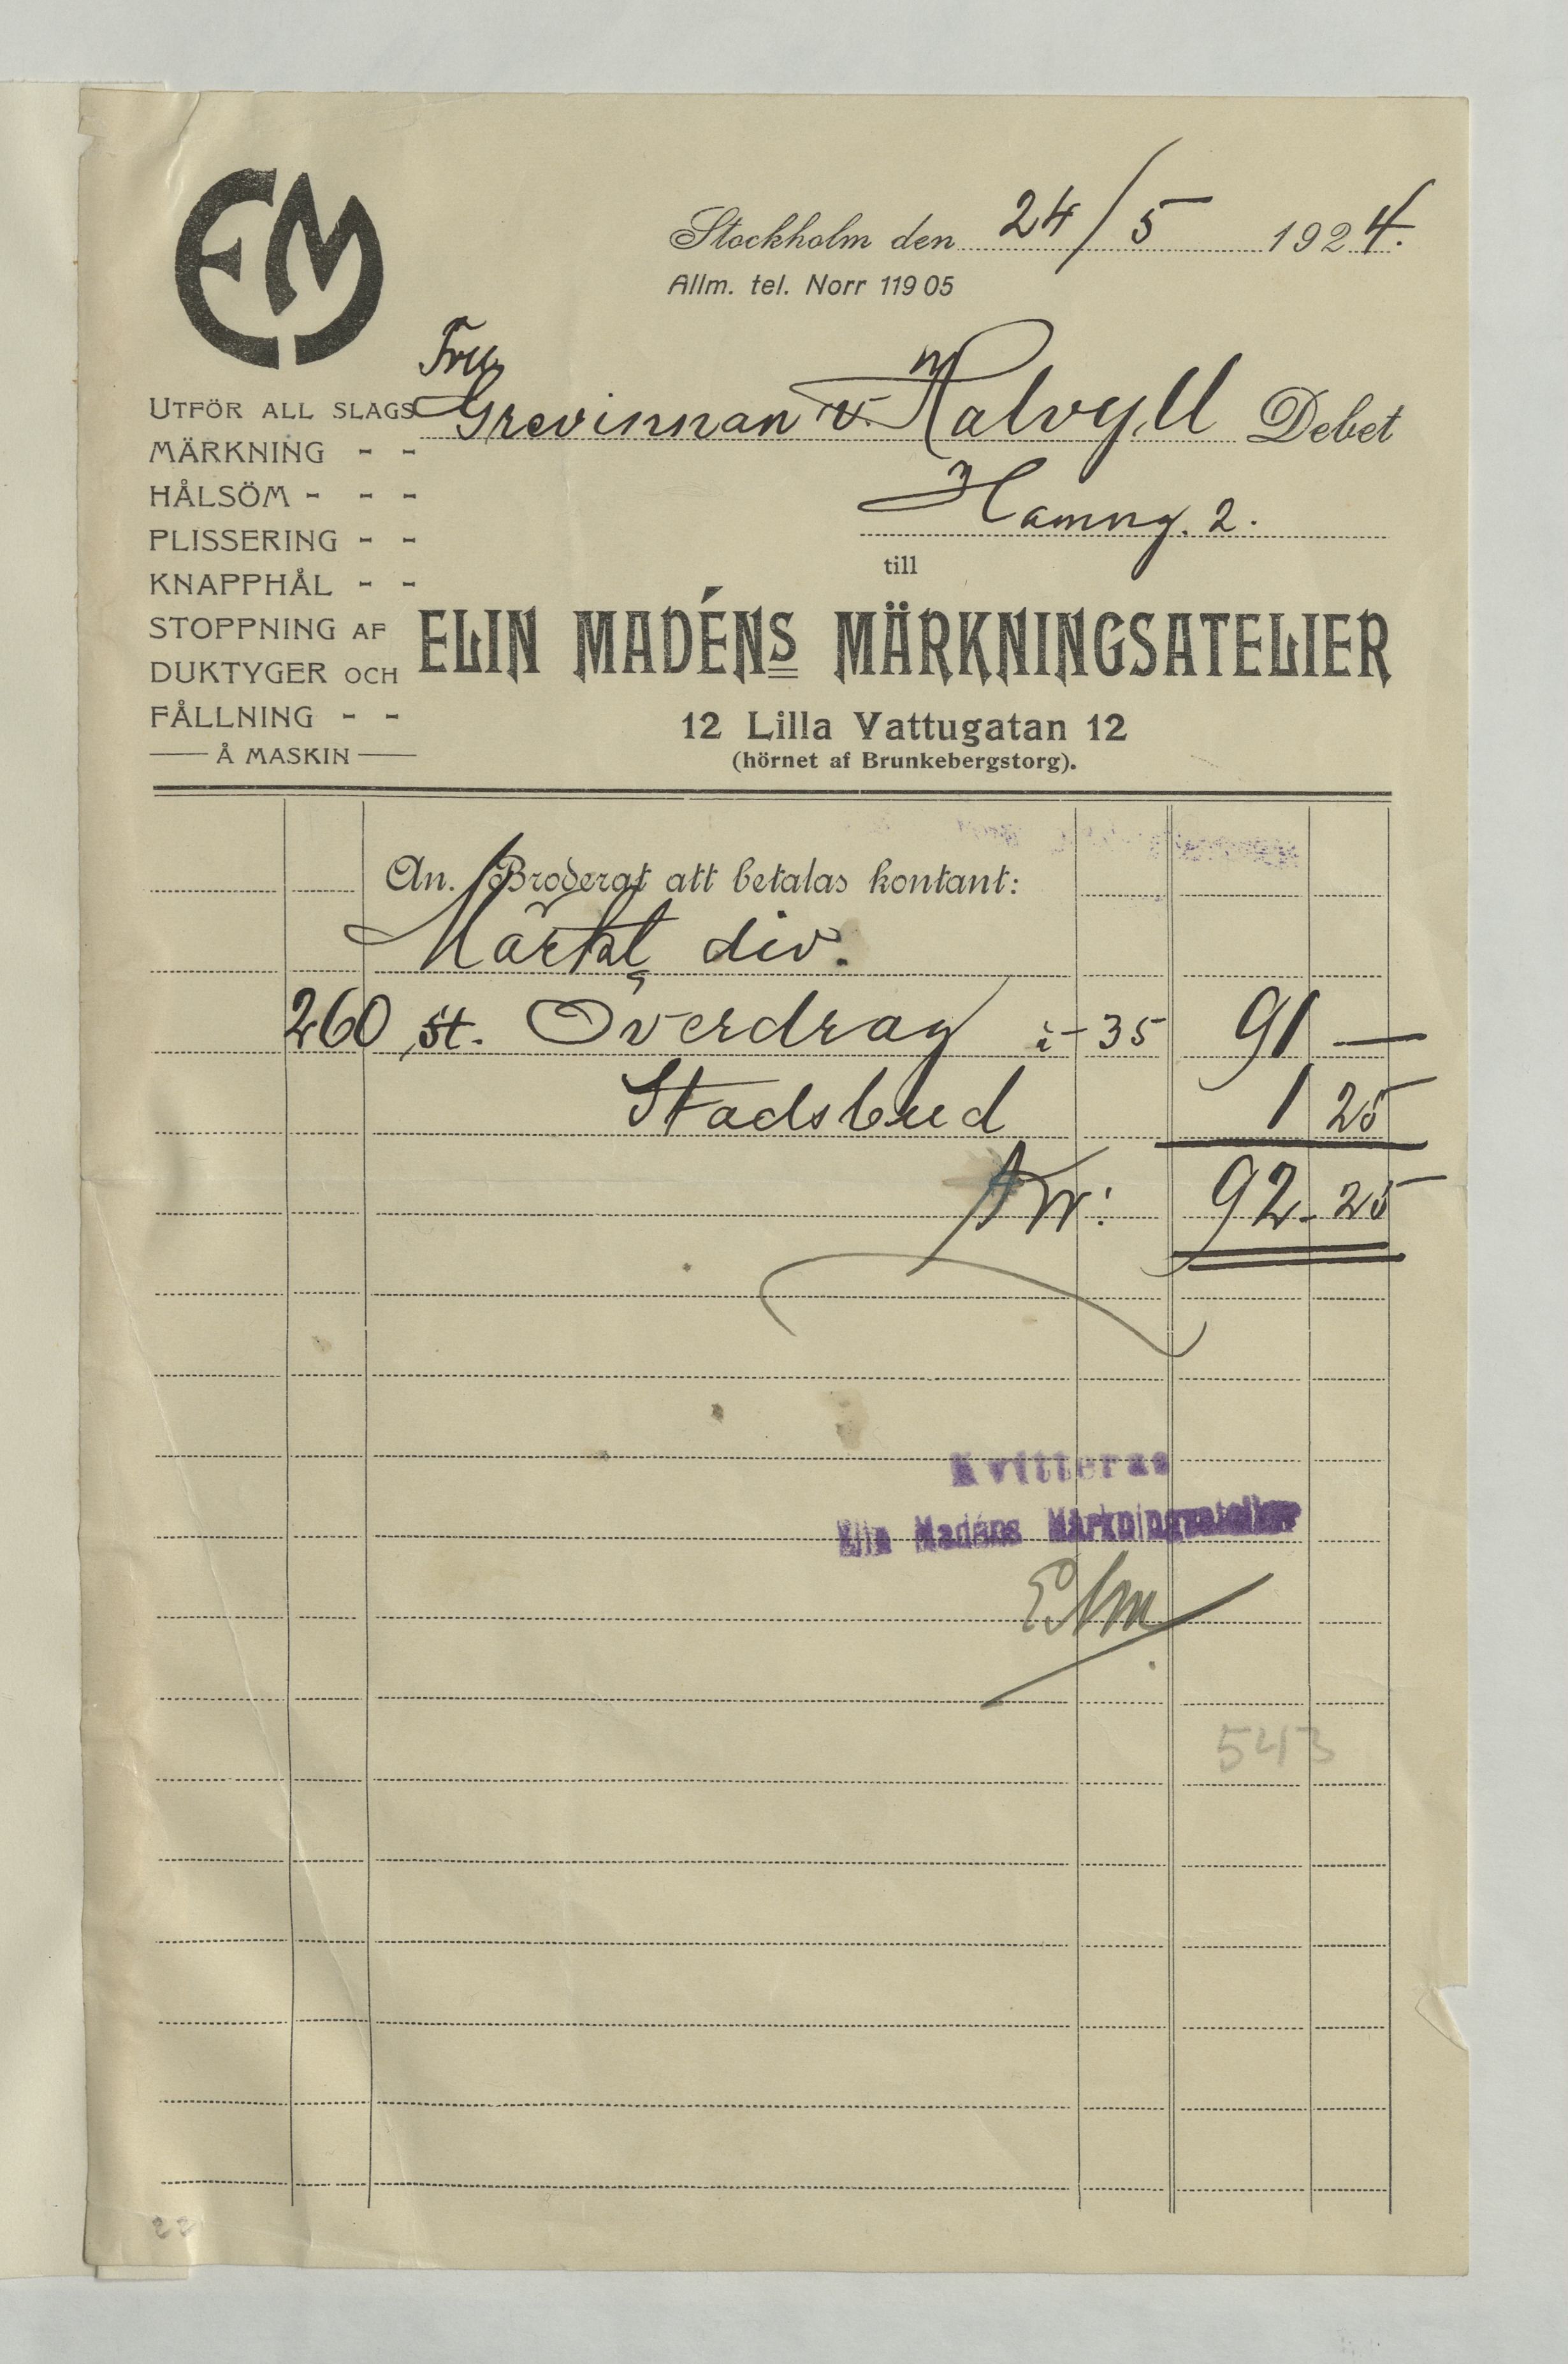 EM
Stockholm den 24/5 1924.
Allm. tel. Norr 119 05
Fru
Grevinnan v. Halvyll Debet
Hamng. 2.
till
UTFÖR ALL SLAGS
MÄRKNING - -
HÅLSÖM - - -
PLISSERING - -
KNAPPHÅL - -
STOPPNING AF
DUKTYGER OCH
FÅLLNING - -
Å MASKIN
ELIN MADÉNS MÄRKNINGSATELIER
12 Lilla Vattugatan 12
(hörnet af Brunkebergstorg).
An. Broderat att betalas kontant:
Märkt div.
260 st. Överdrag à -35 91 —
Stadsbud 1 25
Kr: 92-25
Kvitteras
Elin Madéns Märkningsatelier
EM
543
22